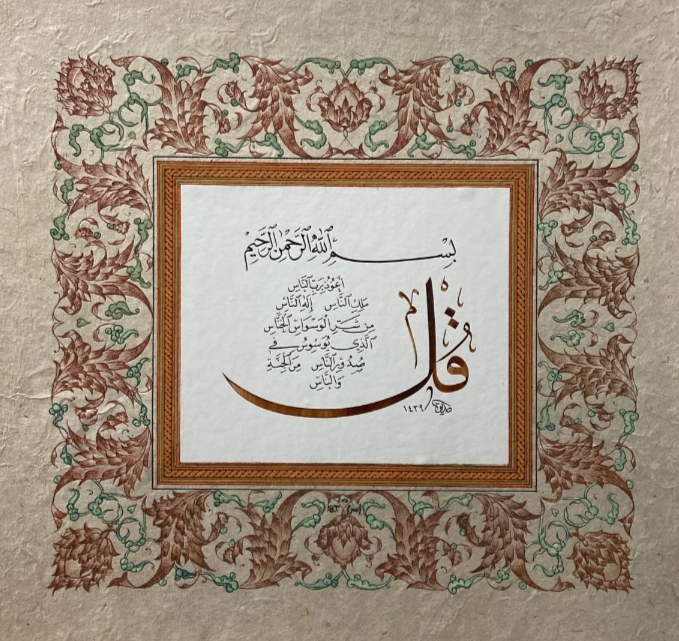 بِسْمِ اللهِ الرَّحْمٰنِ الرَّحِيْمِ
قُلْ
أَعُوْذُ بِرَبِّ النَّاسِ
مَلِكِ النَّاسِ إِلٰهِ النَّاسِ
مِنْ شَرِّ الْوَسْوَاسِ الْخَنَّاسِ
الَّذِي يُوَسْوِسُ فِي
صُدُوْرِ النَّاسِ مِنَ الْجِنَّةِ
وَالنَّاسِ
١٤٣٩